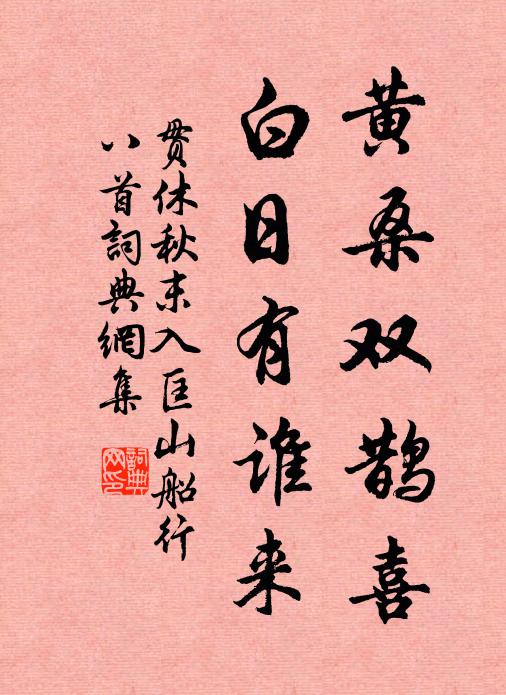 黄桑双鹊喜
白日有谁来
贯休秋末入匡山船行
八首詞典網集
詞典
网印